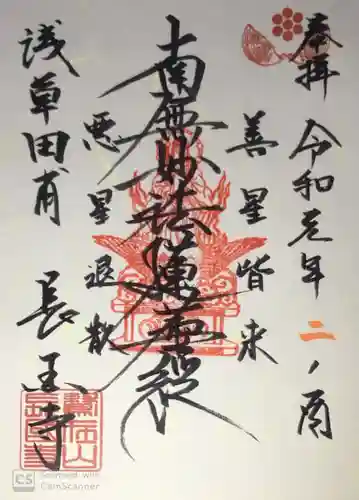 奉拝 令和元年 二ノ酉
善星皆来
南無妙法蓮華経
悪星退散
浅草田甫 長国寺
鷲在山
長國寺
CS Scanned with
CamScanner